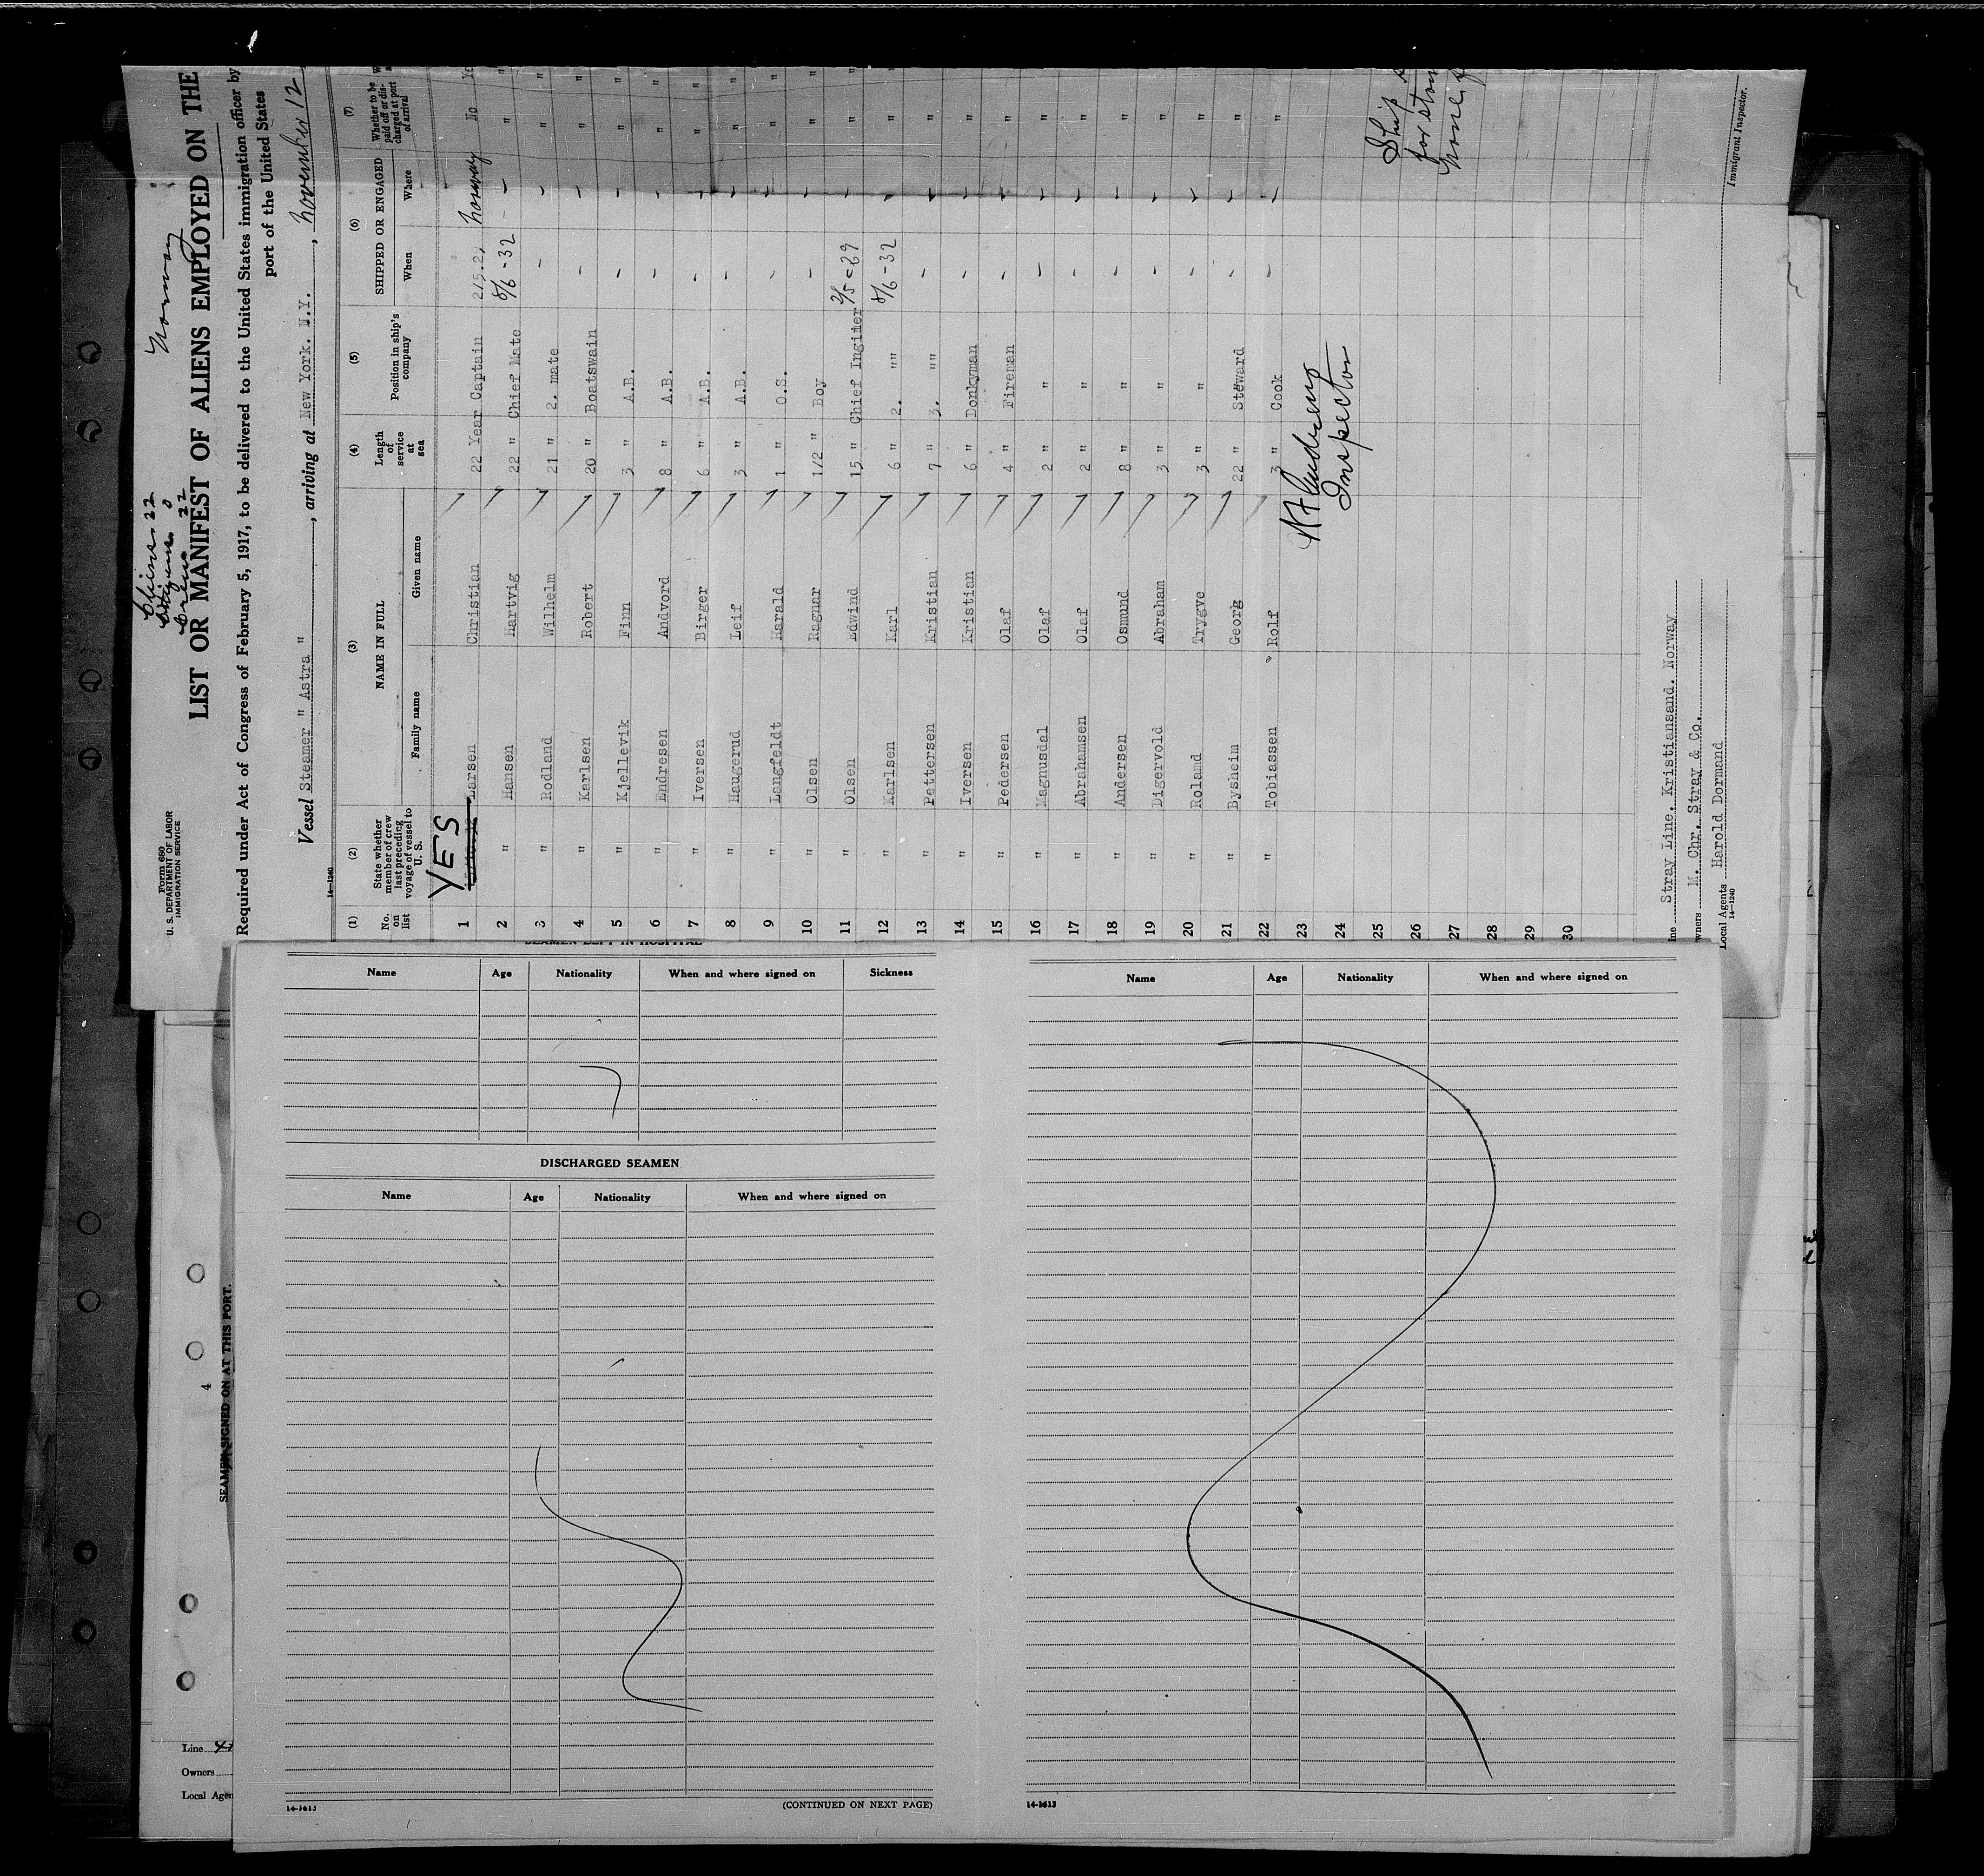 Norway
Aliens 22
Citizens 0
Crew 22
Form 680
U. S. DEPARTMENT OF LABOR
IMMIGRATION SERVICE
LIST OR MANIFEST OF ALIENS EMPLOYED ON THE
Required under Act of Congress of February 5, 1917, to be delivered to the United States immigration officer by
port of the United States
Vessel Steamer " Astra " , arriving at New York. N.Y. , November 12
14—1240
(1) (2) (3) (4) (5) (6) (7)
No. on list
State whether member of crew last preceding voyage of vessel to U. S.
NAME IN FULL
Family name Given name
Length of service at sea
Position in ship's company
SHIPPED OR ENGAGED
When Where
Whether to be paid off or discharged at port of arrival
1 YES Larsen Christian 22 Year Captain 2/5.29 Norway No
2 " Hansen Hartvig 22 " Chief Mate 8/6-32 " "
3 " Rodland Wilhelm 21 " 2. mate - - "
4 " Karlsen Robert 20 " Boatswain - - "
5 " Kjellevik Finn 3 " A.B. - - "
6 " Endresen Andvord 8 " A.B. - - "
7 " Iversen Birger 6 " A.B. - - "
8 " Haugerud Leif 3 " A.B. - - "
9 " Langfeldt Harald 1 " O.S. - - "
10 " Olsen Ragnar 1/2 " Boy - - "
11 " Olsen Edwind 15 " Chief Inginer 2/5-29 - "
12 " Karlsen Karl 6 " 2. "" 8/6-32 - "
13 " Pettersen Kristian 7 " 3. "" - - "
14 " Iversen Kristian 6 " Donkyman - - "
15 " Pedersen Olaf 4 " Fireman - - "
16 " Magnusdal Olaf 2 " " - - "
17 " Abrahamsen Olaf 2 " " - - "
18 " Andersen Osmund 8 " " - - "
19 " Digervold Abraham 3 " " - - "
20 " Roland Trygve 3 " " - - "
21 " Bysheim Georg 22 " Steward - - "
22 " Tobiassen Rolf 3 " Cook - - "
23
24
25
26
27
28
29
30
Inspector
Ship
for
Immigrant Inspector.
Line Stray Line. Kristiansand. Norway
Owners M. Chr. Stray & Co.
Local Agents Harold Dormand
14—1240
SEAMEN LEFT IN HOSPITAL
Name Age Nationality When and where signed on Sickness
DISCHARGED SEAMEN
Name Age Nationality When and where signed on
14-1613
(CONTINUED ON NEXT PAGE)
Name Age Nationality When and where signed on
14-1613
4
SEAMEN SIGNED ON AT THIS PORT.
Line
Owners
Local Agen